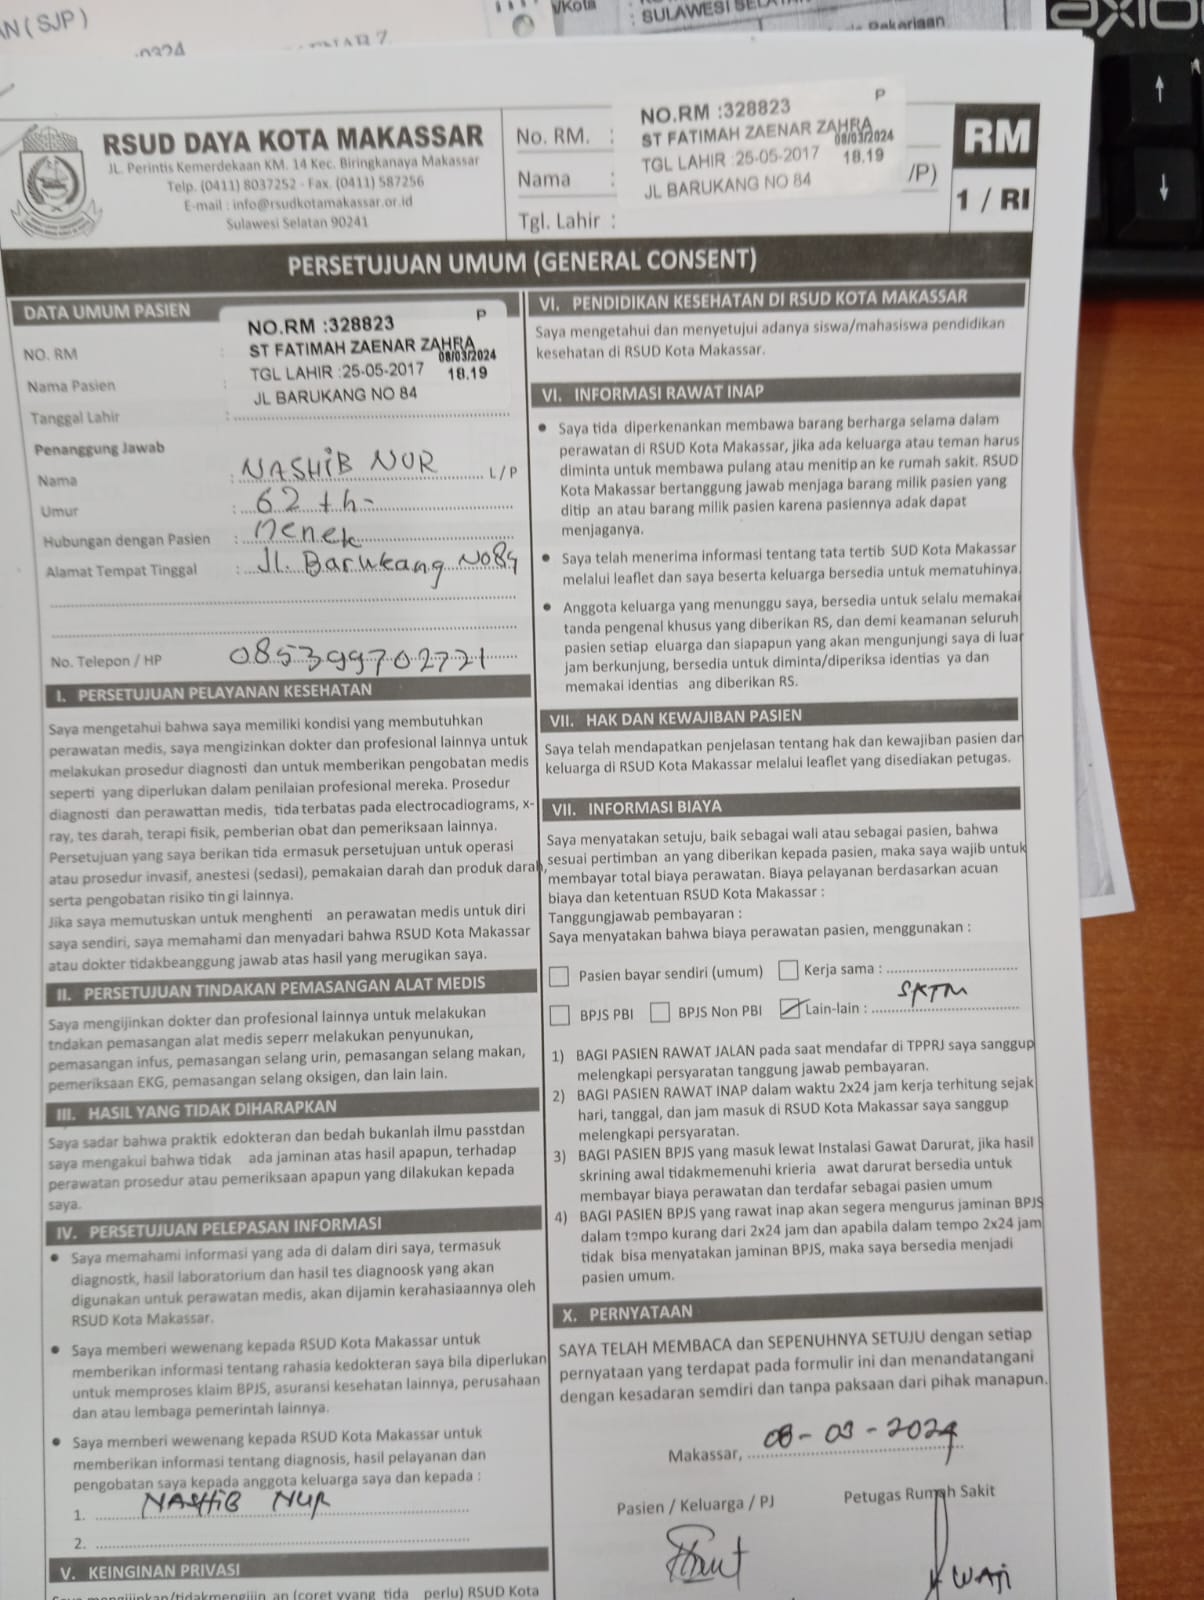 AN ( SJP )
/Kota
: SULAWESI
Pekerjaan
axioo
RSUD DAYA KOTA MAKASSAR
JL. Perintis Kemerdekaan KM. 14 Kec. Biringkanaya Makassar
Telp. (0411) 8037252 - Fax. (0411) 587256
E-mail : info@rsudkotamakassar.or.id
Sulawesi Selatan 90241
No. RM. :
Nama :
Tgl. Lahir :
/P)
NO.RM :328823 P
ST FATIMAH ZAENAR ZAHRA
08/03/2024
TGL LAHIR :25-05-2017 18.19
JL BARUKANG NO 84
RM
1 / RI
PERSETUJUAN UMUM (GENERAL CONSENT)
DATA UMUM PASIEN
NO. RM :
Nama Pasien :
Tanggal Lahir :
NO.RM :328823 P
ST FATIMAH ZAENAR ZAHRA
08/03/2024
TGL LAHIR :25-05-2017 18.19
JL BARUKANG NO 84
Penanggung Jawab
Nama : NASHIB NUR L/P
Umur : 62 th-
Hubungan dengan Pasien : Nenek
Alamat Tempat Tinggal : Jl. Barukang No 84
No. Telepon / HP 085399702721
I. PERSETUJUAN PELAYANAN KESEHATAN
Saya mengetahui bahwa saya memiliki kondisi yang membutuhkan
perawatan medis, saya mengizinkan dokter dan profesional lainnya untuk
melakukan prosedur diagnosti dan untuk memberikan pengobatan medis
seperti yang diperlukan dalam penilaian profesional mereka. Prosedur
diagnosti dan perawattan medis, tida terbatas pada electrocadiograms, x-
ray, tes darah, terapi fisik, pemberian obat dan pemeriksaan lainnya.
Persetujuan yang saya berikan tida ermasuk persetujuan untuk operasi
atau prosedur invasif, anestesi (sedasi), pemakaian darah dan produk darah,
serta pengobatan risiko tin gi lainnya.
Jika saya memutuskan untuk menghenti an perawatan medis untuk diri
saya sendiri, saya memahami dan menyadari bahwa RSUD Kota Makassar
atau dokter tidakbeanggung jawab atas hasil yang merugikan saya.
II. PERSETUJUAN TINDAKAN PEMASANGAN ALAT MEDIS
Saya mengijinkan dokter dan profesional lainnya untuk melakukan
tndakan pemasangan alat medis seperr melakukan penyunukan,
pemasangan infus, pemasangan selang urin, pemasangan selang makan,
pemeriksaan EKG, pemasangan selang oksigen, dan lain lain.
III. HASIL YANG TIDAK DIHARAPKAN
Saya sadar bahwa praktik edokteran dan bedah bukanlah ilmu passtdan
saya mengakui bahwa tidak ada jaminan atas hasil apapun, terhadap
perawatan prosedur atau pemeriksaan apapun yang dilakukan kepada
saya.
IV. PERSETUJUAN PELEPASAN INFORMASI
• Saya memahami informasi yang ada di dalam diri saya, termasuk
diagnostk, hasil laboratorium dan hasil tes diagnoosk yang akan
digunakan untuk perawatan medis, akan dijamin kerahasiaannya oleh
RSUD Kota Makassar.
• Saya memberi wewenang kepada RSUD Kota Makassar untuk
memberikan informasi tentang rahasia kedokteran saya bila diperlukan
untuk memproses klaim BPJS, asuransi kesehatan lainnya, perusahaan
dan atau lembaga pemerintah lainnya.
• Saya memberi wewenang kepada RSUD Kota Makassar untuk
memberikan informasi tentang diagnosis, hasil pelayanan dan
pengobatan saya kepada anggota keluarga saya dan kepada :
1. NASHIB NUR
2.
V. KEINGINAN PRIVASI
mengijinkan/tidakmengijin an (coret yyang tida perlu) RSUD Kota
VI. PENDIDIKAN KESEHATAN DI RSUD KOTA MAKASSAR
Saya mengetahui dan menyetujui adanya siswa/mahasiswa pendidikan
kesehatan di RSUD Kota Makassar.
VI. INFORMASI RAWAT INAP
• Saya tida diperkenankan membawa barang berharga selama dalam
perawatan di RSUD Kota Makassar, jika ada keluarga atau teman harus
diminta untuk membawa pulang atau menitip an ke rumah sakit. RSUD
Kota Makassar bertanggung jawab menjaga barang milik pasien yang
ditip an atau barang milik pasien karena pasiennya adak dapat
menjaganya.
• Saya telah menerima informasi tentang tata tertib SUD Kota Makassar
melalui leaflet dan saya beserta keluarga bersedia untuk mematuhinya.
• Anggota keluarga yang menunggu saya, bersedia untuk selalu memakai
tanda pengenal khusus yang diberikan RS, dan demi keamanan seluruh
pasien setiap eluarga dan siapapun yang akan mengunjungi saya di luar
jam berkunjung, bersedia untuk diminta/diperiksa identias ya dan
memakai identias ang diberikan RS.
VII. HAK DAN KEWAJIBAN PASIEN
Saya telah mendapatkan penjelasan tentang hak dan kewajiban pasien dan
keluarga di RSUD Kota Makassar melalui leaflet yang disediakan petugas.
VII. INFORMASI BIAYA
Saya menyatakan setuju, baik sebagai wali atau sebagai pasien, bahwa
sesuai pertimban an yang diberikan kepada pasien, maka saya wajib untuk
membayar total biaya perawatan. Biaya pelayanan berdasarkan acuan
biaya dan ketentuan RSUD Kota Makassar :
Tanggungjawab pembayaran :
Saya menyatakan bahwa biaya perawatan pasien, menggunakan :
Pasien bayar sendiri (umum) Kerja sama :
BPJS PBI BPJS Non PBI Lain-lain : SKTM
1) BAGI PASIEN RAWAT JALAN pada saat mendafar di TPPRJ saya sanggup
melengkapi persyaratan tanggung jawab pembayaran.
2) BAGI PASIEN RAWAT INAP dalam waktu 2x24 jam kerja terhitung sejak
hari, tanggal, dan jam masuk di RSUD Kota Makassar saya sanggup
melengkapi persyaratan.
3) BAGI PASIEN BPJS yang masuk lewat Instalasi Gawat Darurat, jika hasil
skrining awal tidakmemenuhi krieria awat darurat bersedia untuk
membayar biaya perawatan dan terdafar sebagai pasien umum
4) BAGI PASIEN BPJS yang rawat inap akan segera mengurus jaminan BPJS
dalam tempo kurang dari 2x24 jam dan apabila dalam tempo 2x24 jam
tidak bisa menyatakan jaminan BPJS, maka saya bersedia menjadi
pasien umum.
X. PERNYATAAN
SAYA TELAH MEMBACA dan SEPENUHNYA SETUJU dengan setiap
pernyataan yang terdapat pada formulir ini dan menandatangani
dengan kesadaran semdiri dan tanpa paksaan dari pihak manapun.
Makassar, 08-03-2024
Pasien / Keluarga / PJ Petugas Rumah Sakit
WAJI